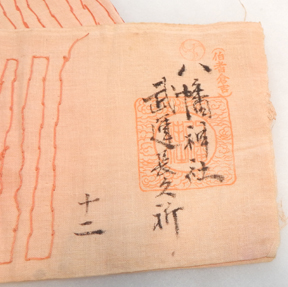 八幡神社
武運長久祈
十二